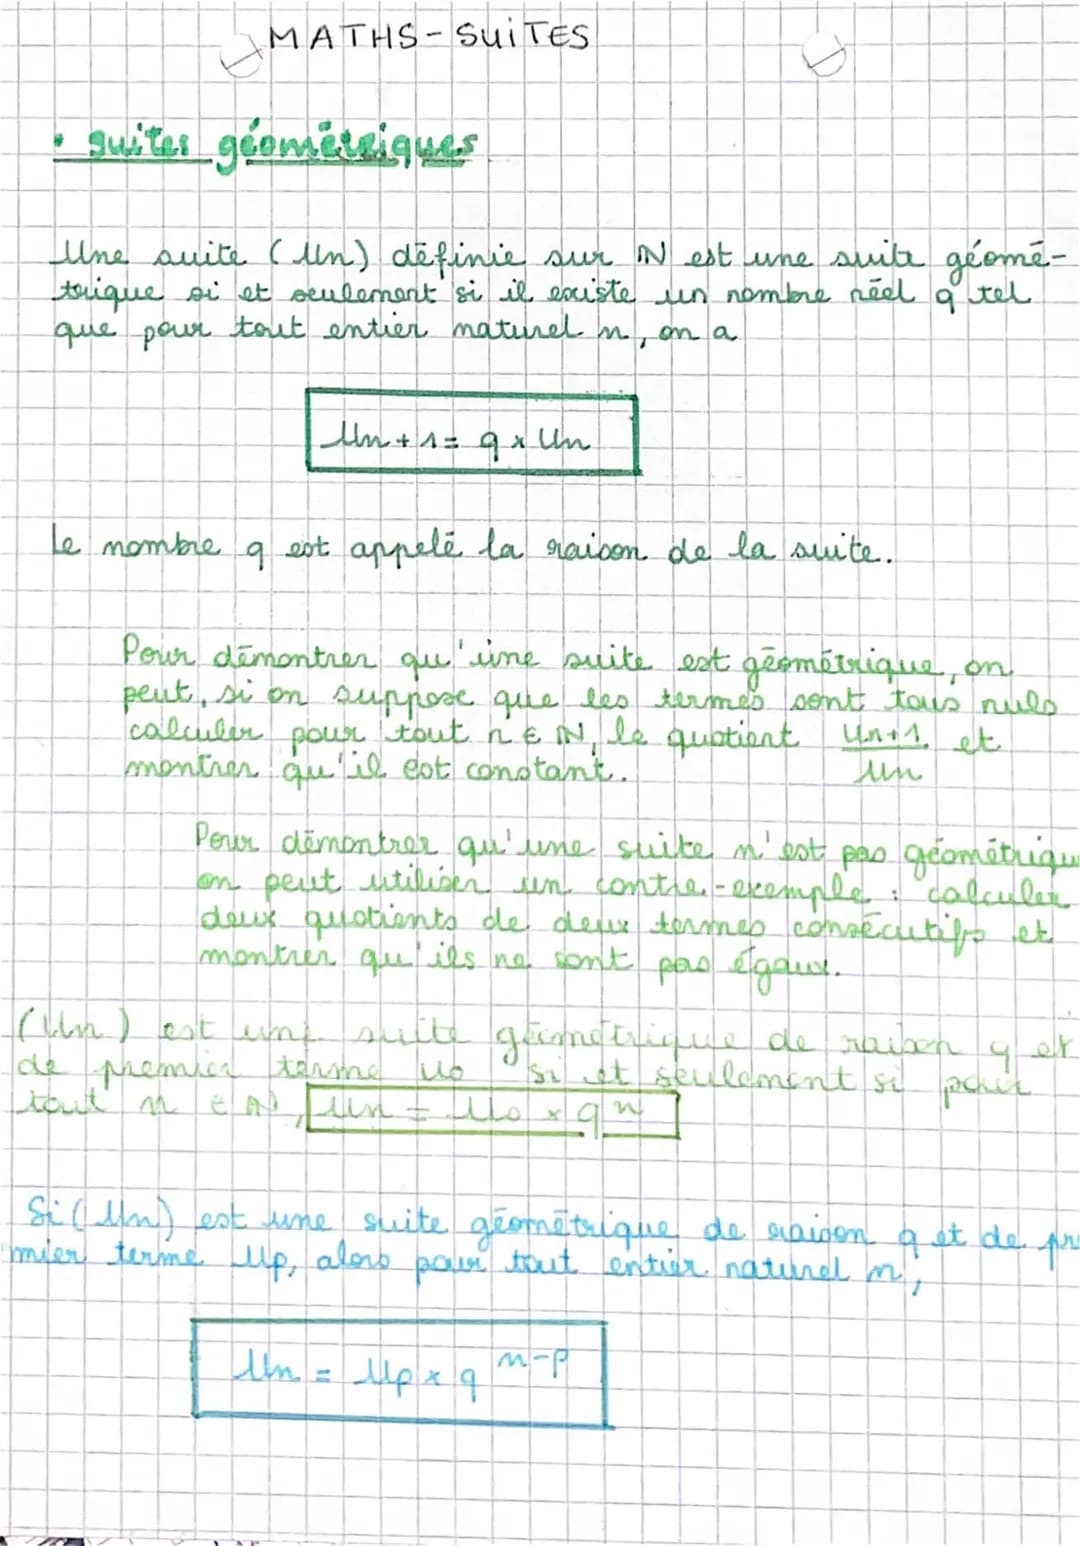 MATHS-SUITES
• suites géométriques
Une suite (Un) définie sur ℕ est une suite géomé-
trique si et seulement si il existe un nombre réel q tel
que pour tout entier naturel n, on a
Un+1= q x Un
Le nombre q est appelé la raison de la suite.
Pour démontrer qu'une suite est géométrique, on
peut, si on suppose que les termes sont tous nuls
calculer pour tout n ∈ ℕ, le quotient Un+1/Un et
montrer qu'il est constant.
Pour démontrer qu'une suite n'est pas géométrique
on peut utiliser un contre-exemple : calculer
deux quotients de deux termes consécutifs et
montrer qu'ils ne sont pas égaux.
(Un) est une suite géométrique de raison q et
de premier terme U0 si et seulement si pour
tout n ∈ ℕ, Un = U0 x qⁿ
Si (Un) est une suite géométrique de raison q et de pre
mier terme Up, alors pour tout entier naturel n,
Un = Up x q n-p